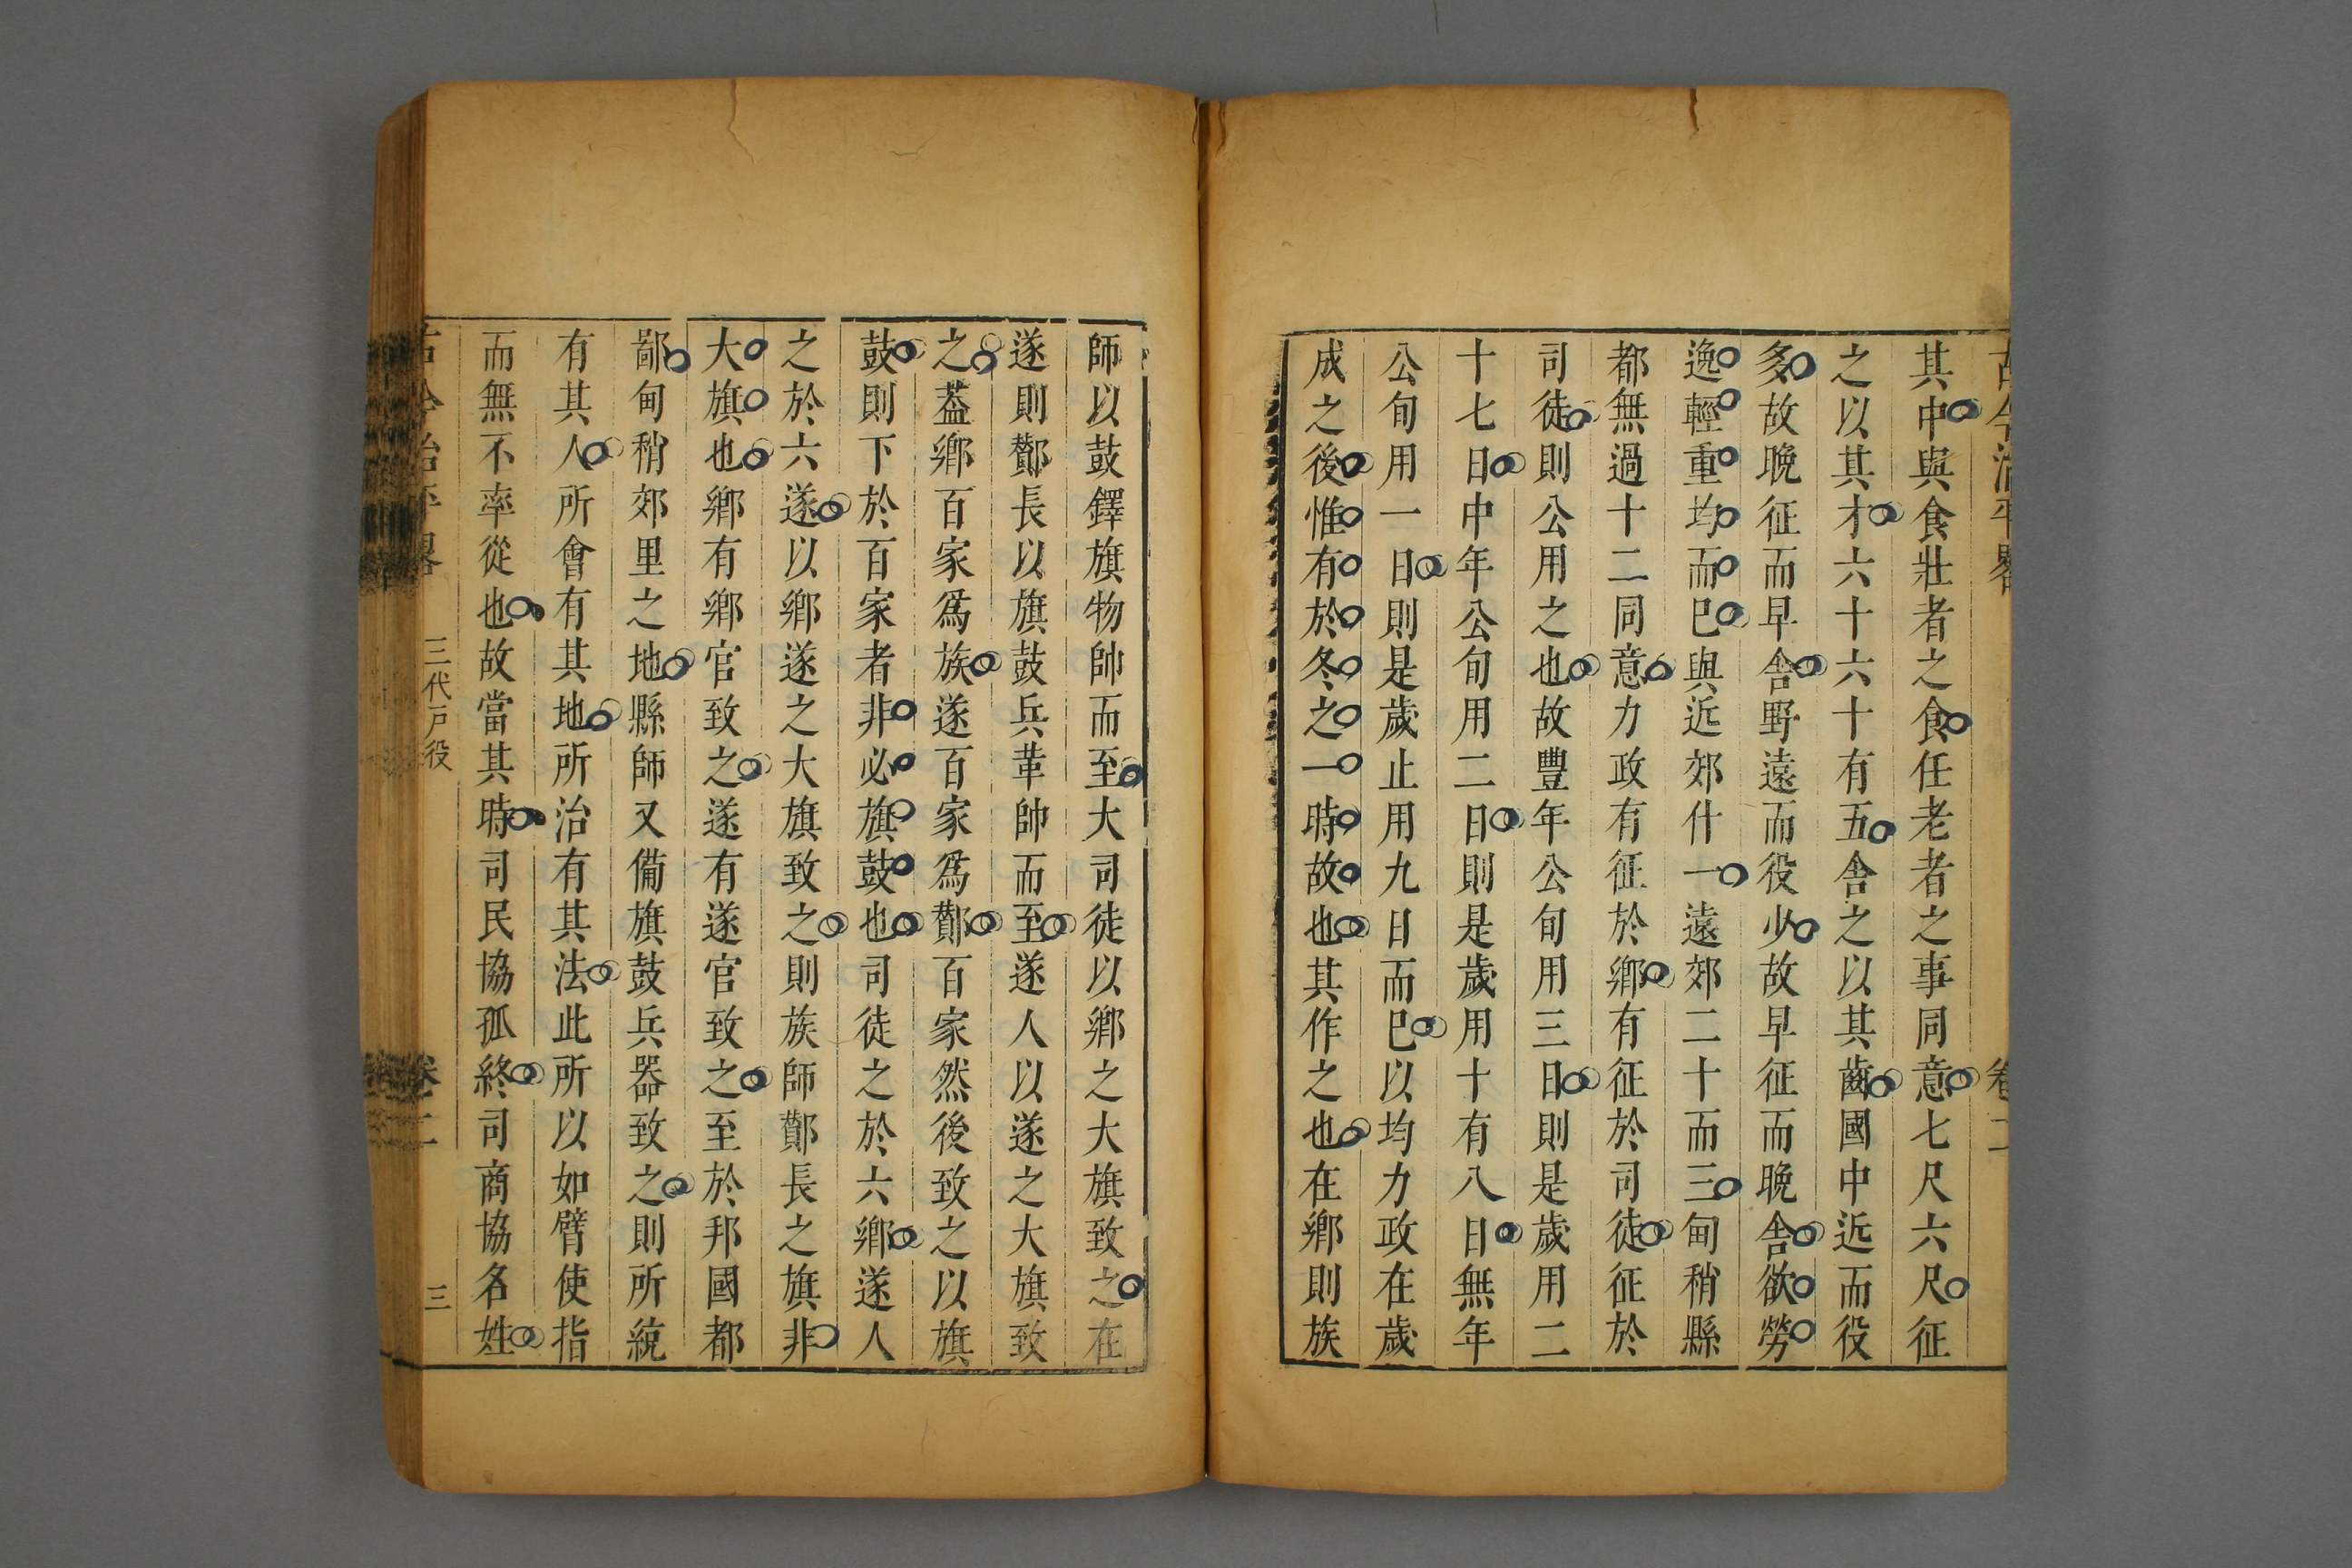 古今治平畧 卷二
其中與食壯者之食任老者之事同意七尺六尺征
之以其才六十六十有五舍之以其齒國中近而役
多故晚征而早舍野遠而役少故早征而晚舍欲勞
逸輕重均而巳與近郊什一遠郊二十而三甸稍縣
都無過十二同意力政有征於鄉有征於司徒征於
司徒則公用之也故豐年公旬用三日則是歲用二
十七日中年公旬用二日則是歲用十有八日無年
公旬用一日則是歲止用九日而巳以均力政在歲
成之後惟有於冬之一時故也其作之也在鄉則族
師以鼓鐸旗物帥而至大司徒以鄉之大旗致之在
遂則酇長以旗鼓兵革帥而至遂人以遂之大旗致
之葢鄉百家爲族遂百家爲酇百家然後致之以旗
鼓則下於百家者非必旗鼓也司徒之於六鄉遂人
之於六遂以鄉遂之大旗致之則族師酇長之旗非
大旗也鄉有鄉官致之遂有遂官致之至於邦國都
鄙甸稍郊里之地縣師又備旗鼓兵器致之則所統
有其人所會有其地所治有其法此所以如臂使指
而無不率從也故當其時司民協孤終司商協名姓
古今治平畧 三代戸役 卷二 三